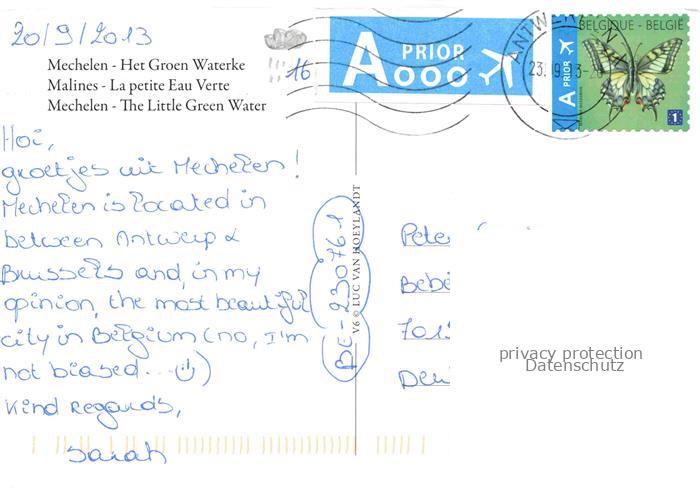 20/9/2013
Mechelen - Het Groen Waterke
Malines - La petite Eau Verte
Mechelen - The Little Green Water
16
A PRIOR
BELGIQUE - BELGIË
A PRIOR
1
Hoi,
groetjes uit Mechelen!
Mechelen is located in
between Antwerp &
Brussels and, in my
opinion, the most beautiful
city in Belgium (no, I'm
not biased... )
Kind Regards,
Sarah
BE-230761
V6 © LUC VAN HOEYLANDT
Pete
Bebe
Deu
privacy protection
Datenschutz